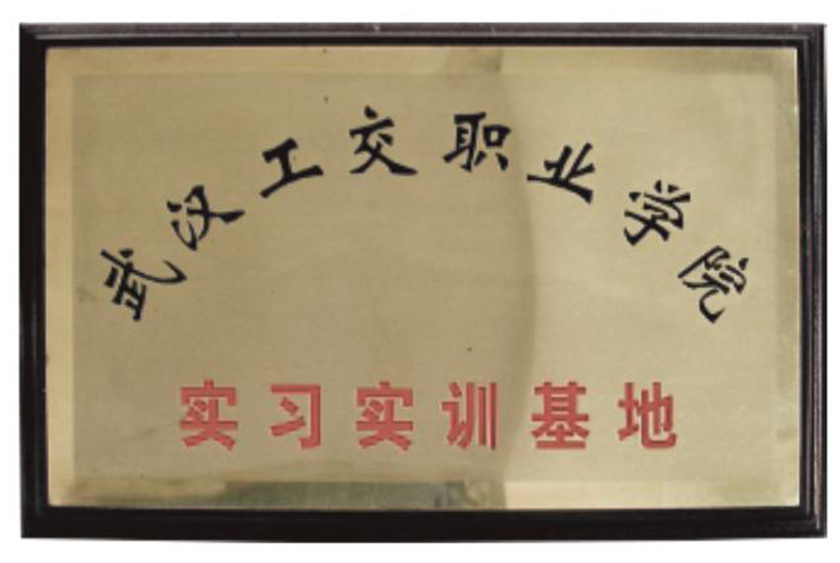 武汉工交职业学院
实习实训基地